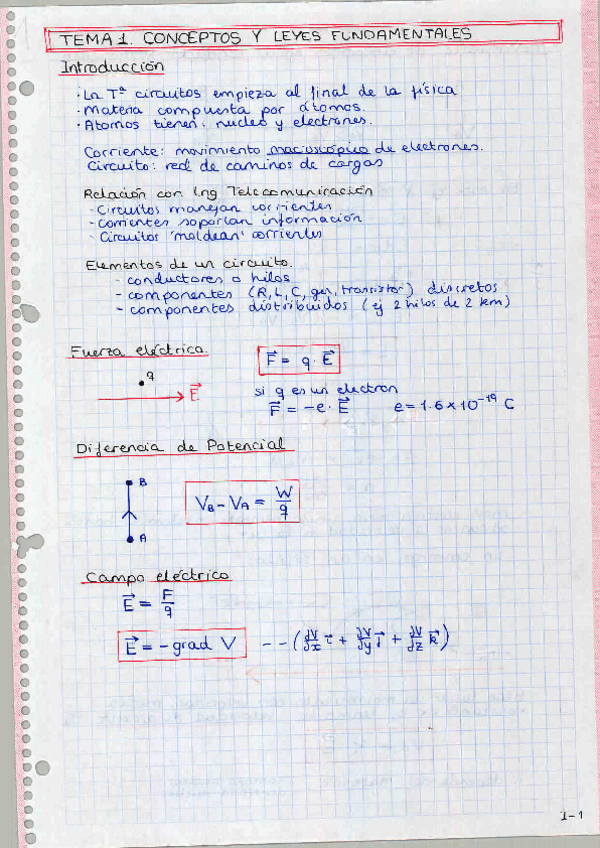 TEMA 1. CONCEPTOS Y LEYES FUNDAMENTALES
Introducción
· La Tª circuitos empieza al final de la física
· Materia compuesta por átomos.
· Atomos tienen: nucleo y electrones.
Corriente: movimiento macroscópico de electrones.
Circuito: red de caminos de cargas
Relación con Ing Telecomunicación
- Circuitos manejan corrientes
- corrientes soportan información
- Circuitos 'moldean' corrientes
Elementos de un circuito.
- conductores o hilos
- componentes (R, L, C, gen, transistor) discretos
- componentes distribuidos (ej 2 hilos de 2 km)
Fuerza eléctrica.
F⃗ = q · E⃗
q
E⃗
si q es un electron
F⃗ = -e · E⃗ e = 1.6 × 10⁻¹⁹ C
Diferencia de Potencial
B
V_B - V_A = W/q
A
Campo eléctrico
E⃗ = F/q
E⃗ = - grad V -- (∂V/∂x i⃗ + ∂V/∂y j⃗ + ∂V/∂z k⃗)
1-1